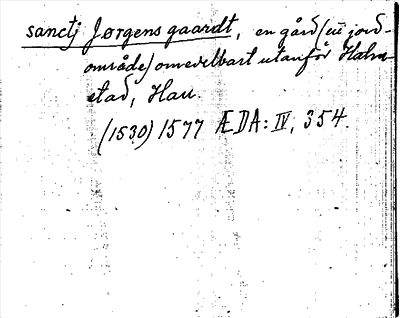 sanctj Jørgens gaardt, en gård (el. jord-
område) omedelbart utanför Halm-
stad, Hall.
(1530) 1577 ÆDA: IV, 354.